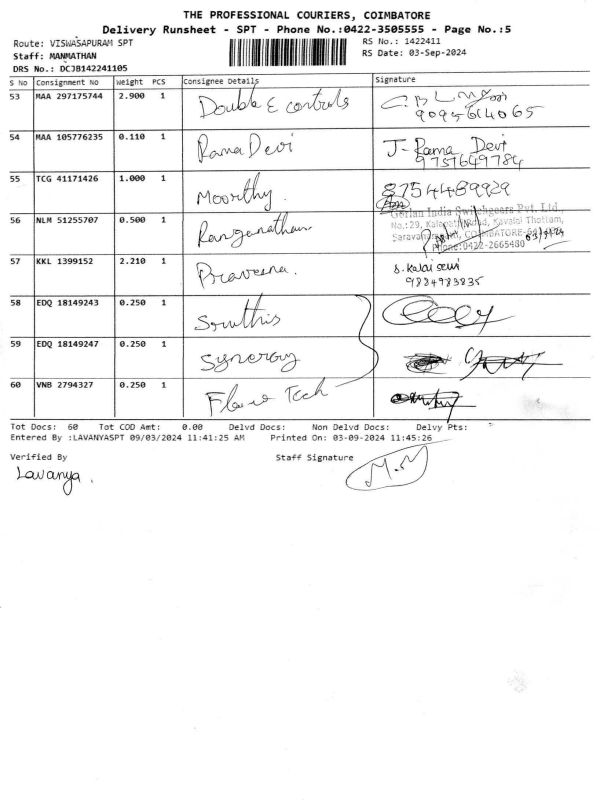 THE PROFESSIONAL COURIERS, COIMBATORE
Delivery Runsheet - SPT - Phone No.:0422-3505555 - Page No.:5
Route: VISWASAPURAM SPT RS No.: 1422411
Staff: MANMATHAN RS Date: 03-Sep-2024
DRS No.: DCJB142241105
S No Consignment No Weight PCS Consignee Details Signature
53 MAA 297175744 2.900 1 Double E controls
9095614065
54 MAA 105776235 0.110 1 Rama Devi J- Rama Devi
9751649784
55 TCG 41171426 1.000 1 Moorthy. 8754489929
Gorlan India Switchgears Pvt. Ltd.,
56 NLM 51255707 0.500 1 Ranganathan No.:29, Kalapatti Road, Kavalai Thottam,
COIMBATORE-64
Phone:0422-2665480
57 KKL 1399152 2.210 1 Praveena. S. Kalai selvi
9884983835
58 EDQ 18149243 0.250 1 Sruthis
59 EDQ 18149247 0.250 1 Synergy
60 VNB 2794327 0.250 1 Flow Tech
Tot Docs: 60 Tot COD Amt: 0.00 Delvd Docs: Non Delvd Docs: Delvy Pts:
Entered By :LAVANYASPT 09/03/2024 11:41:25 AM Printed On: 03-09-2024 11:45:26
Verified By Staff Signature
Lavanya. M.M